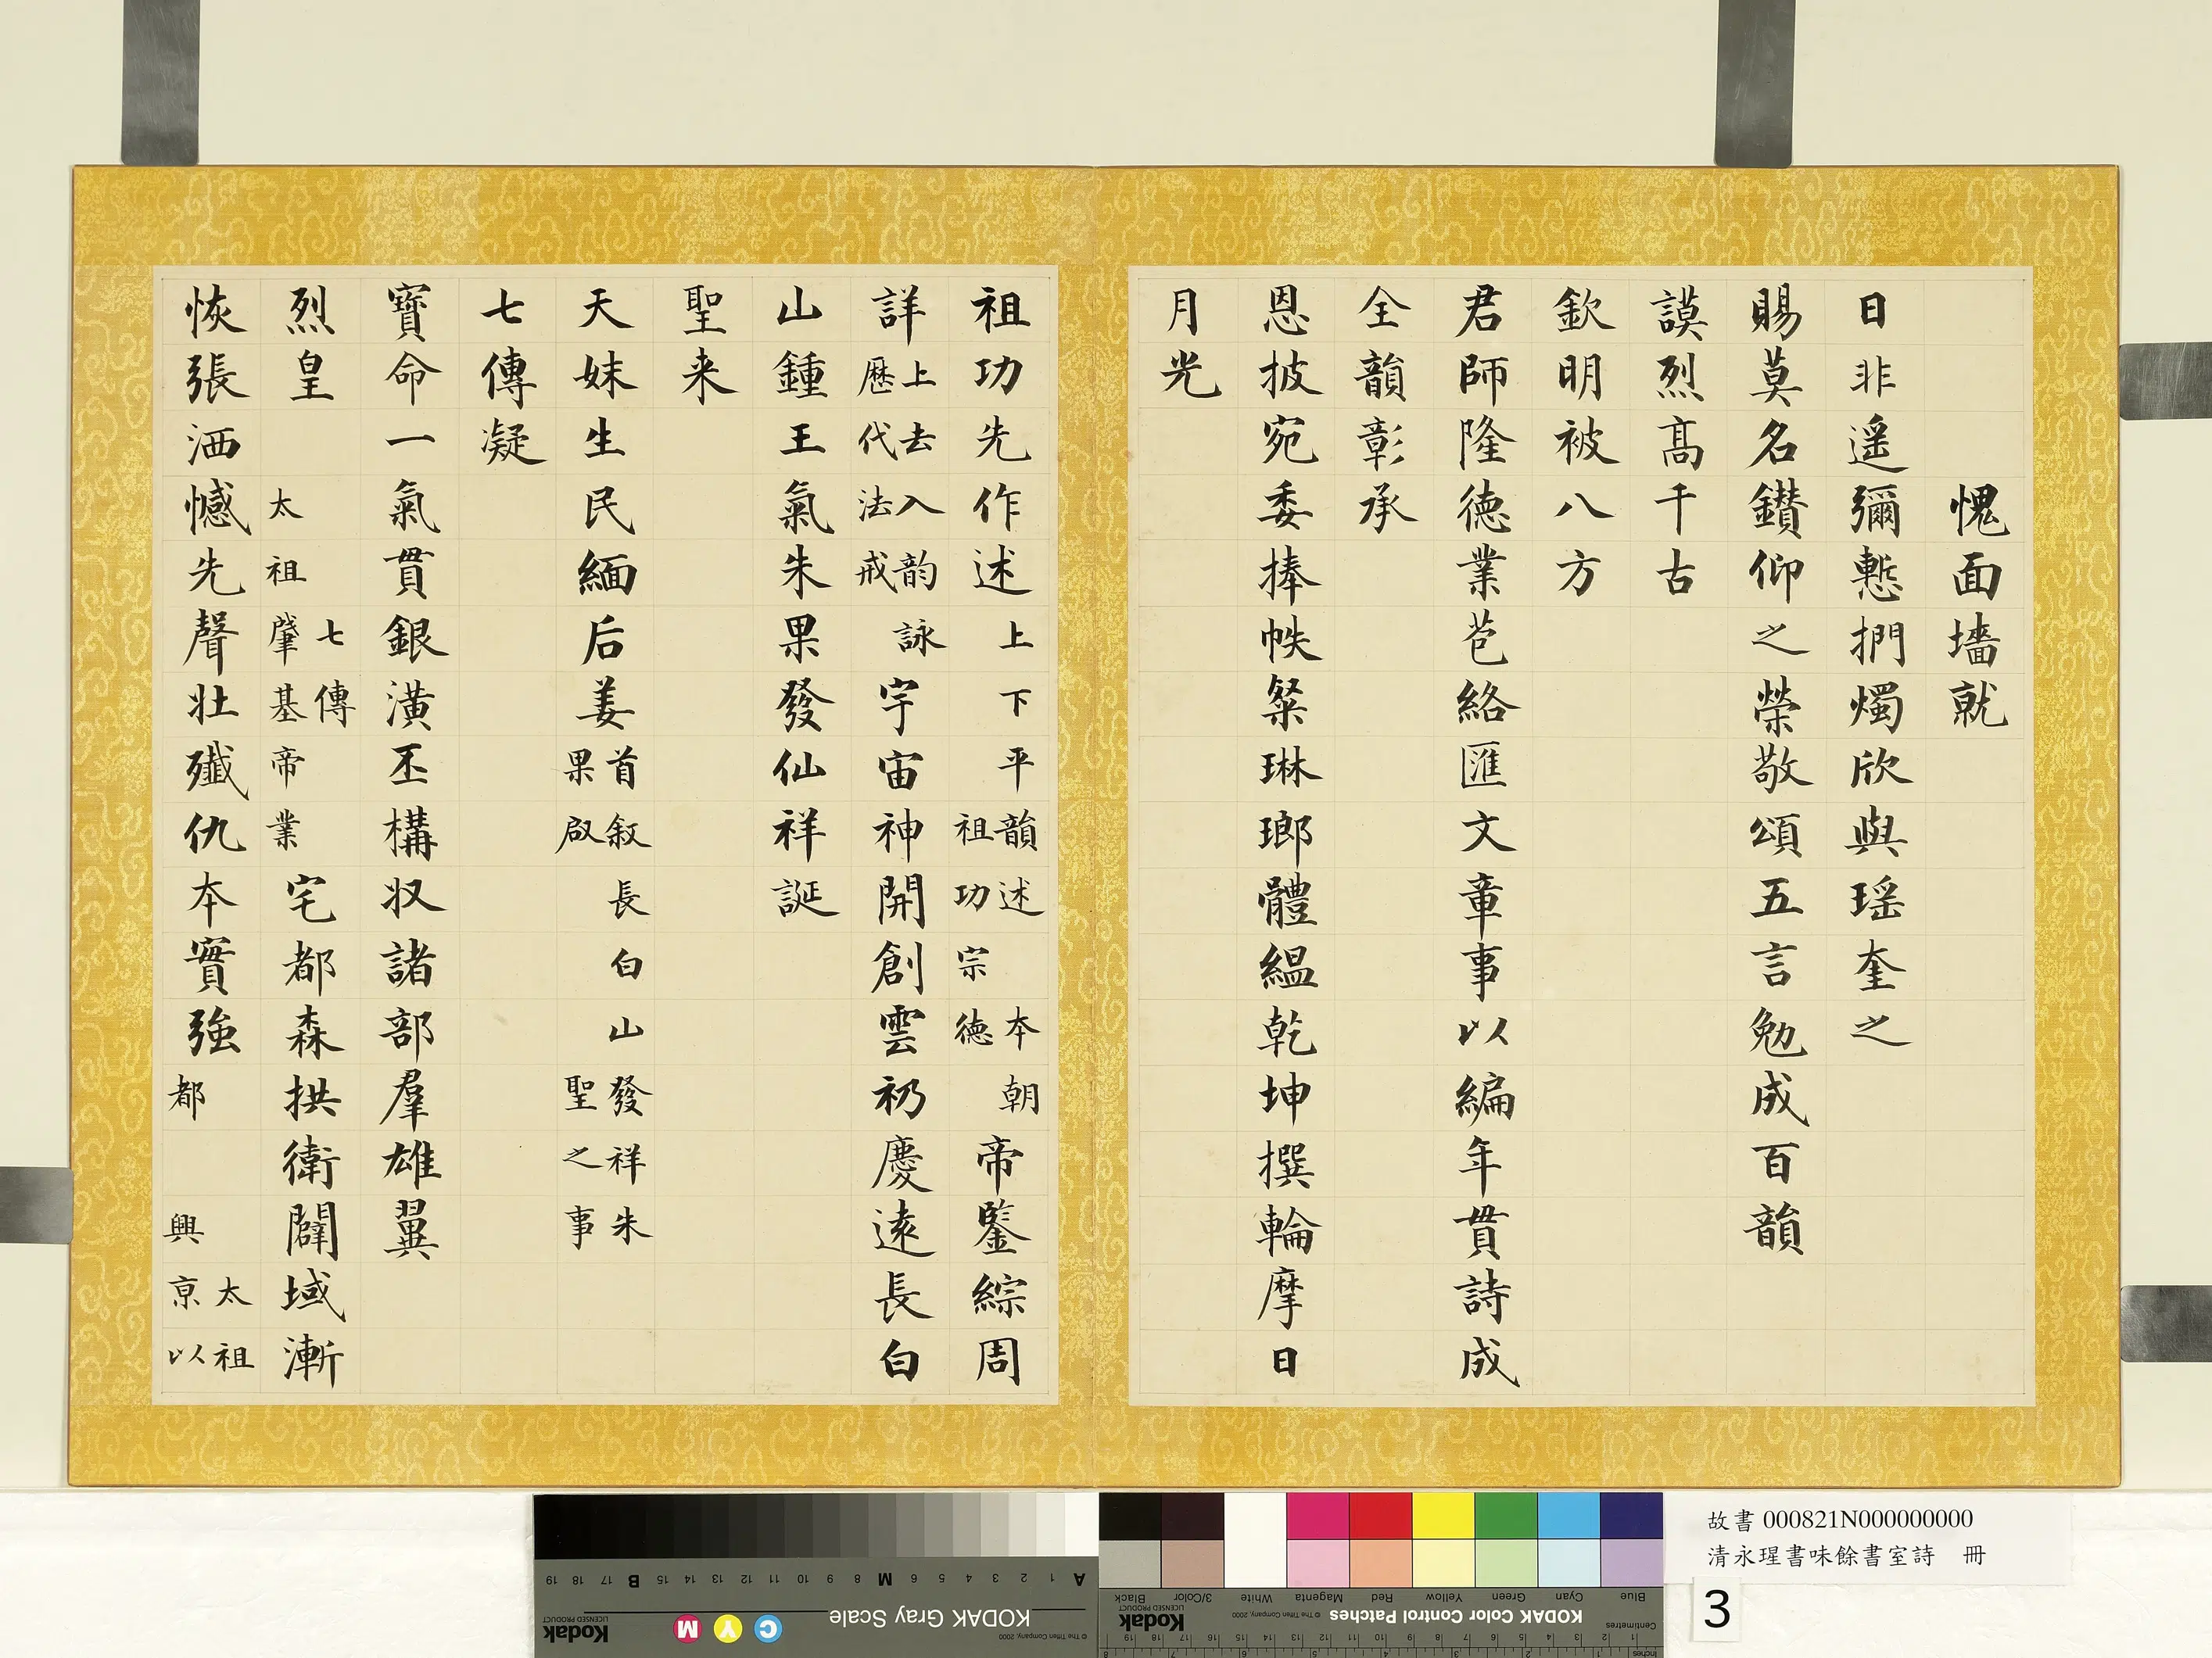 愧面墻就
日非遥彌慙捫燭欣與瑶奎之
賜莫名鑚仰之榮敬頌五言勉成百韻
謨烈髙千古
欽明被八方
君師隆德業苞絡匯文章事以編年貫詩成
全韻彰承
恩披宛委捧帙粲琳瑯體緼乾坤撰輪摩日
月光
祖功先作述上下平韻述本朝祖功宗德帝鑒綜周
詳上去入韵詠歷代法戒宇宙神開創雲礽慶逺長白
山鍾王氣朱果發仙祥誕
聖来
天妹生民緬后姜首叙長白山發祥朱果啟聖之事
七傳凝
寳命一氣貫銀潢丕構収諸部羣雄翼
烈皇七傳太祖肇基帝業宅都森拱衛闢域漸
恢張洒憾先聲壯殲仇本實強太祖都興京以
故書 000821N000000000
清永瑆書味餘書室詩 冊
3
KODAK Gray Scale
Kodak
LICENSED PRODUCT
© The Tiffen Company, 2000
C Y M
A 1 2 3 4 5 6 M 8 9 10 11 12 13 14 15 B 17 18 19
KODAK Color Control Patches
© The Tiffen Company, 2000
Kodak
LICENSED PRODUCT
Blue Cyan Green Yellow Red Magenta White 3/Color Black
Centimetres
Inches